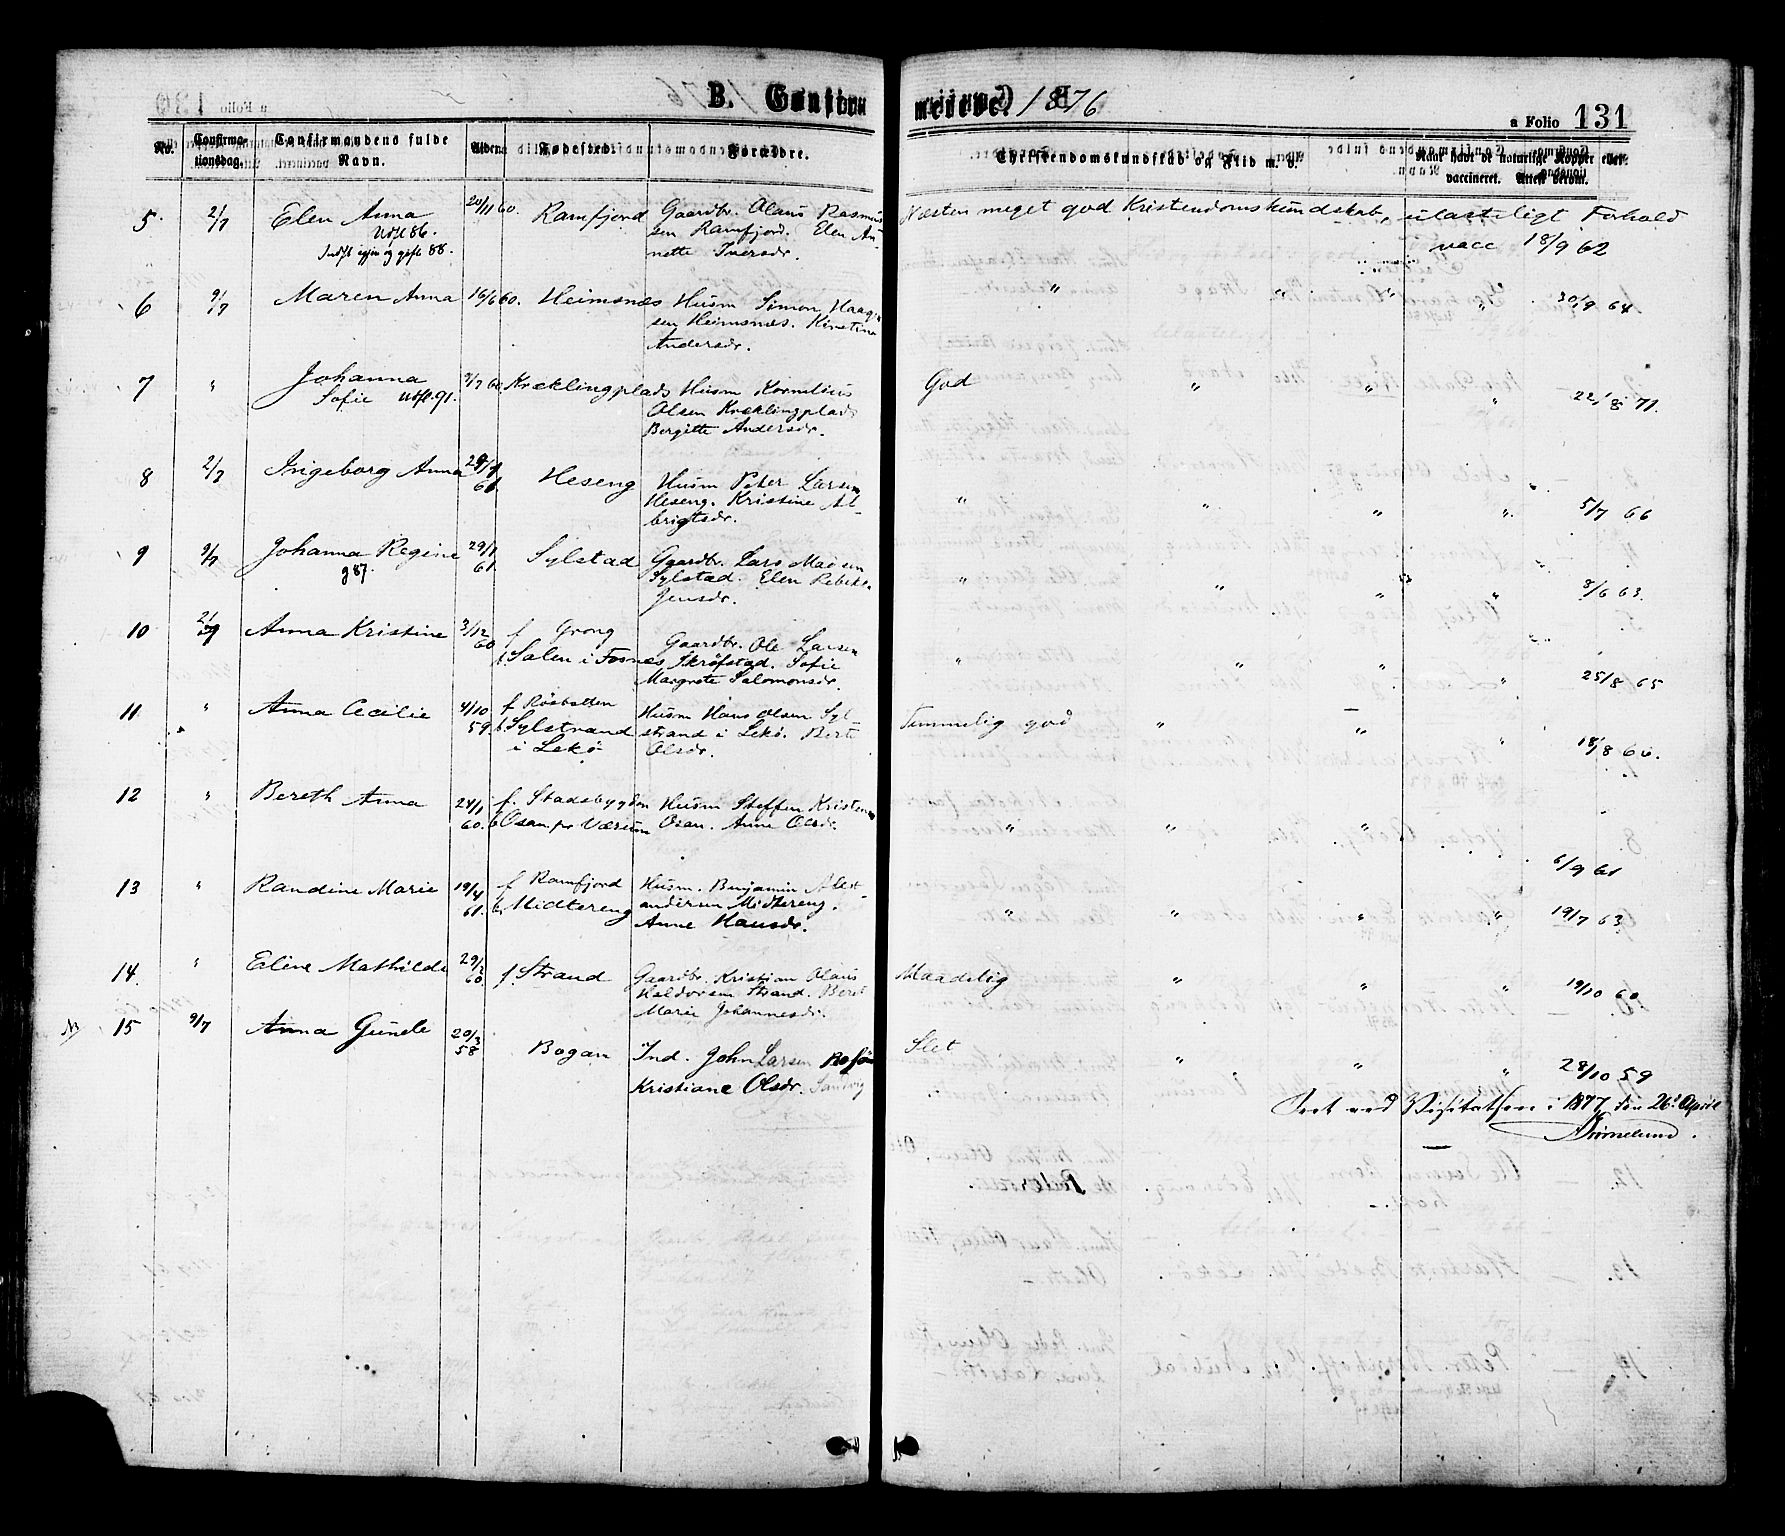 B. Confirmerede. 1876
a Folio 131
No. Confirmationsdag. Confirmandens fulde Navn. Alder. Fødested. Forældre. Christendomskundskab og Flid m. v. Naar havt de naturlige Kopper eller vaccineret. Attest derom.
5. 2/7 Elen Anna 20/11 60. Ramfjord Gaardbr. Olaus Rasmus- Næsten meget god Kristendomskundskab, ulasteligt Forhold
Udfl 86. sen Ramfjord. Elen An- vacc 18/9 62
Indfl igjen og gift 88. nette Iversdr.
6 9/7 Maren Anna 16/6 60. Heimsnæs Husm Simon Haag- " " " " 30/9 64
sen Heimsnæs. Kirstine
Andersdr.
7 " Johanna 9/7 60. Kræklingplads Husm Kornelius God " " " 22/8 71.
Sofie Udfl. 91. Olsen Kræklingplads
Bergitte Andersdr.
8 2/7 Ingeborg Anna Heseng Husm Peter Larsen " " " " 5/7 66
61. Heseng. Kristine Al-
brigtsdr.
9 9/7 Johanna Regine 29/1 Sylstad Gaardbr. Lars Madsen " " " " 8/6 63.
g 87. 61. Sylstad. Elen Rebekka
Jensdr.
10 2/7 Anna Kristine 3/12 f Grong Gaardbr. Ole Larsen " " " " 25/8 65
60 b Salen i Fosnes Skröfstad. Sofie
Margrete Salomonsdr.
11 " Anna Cecilie 4/10 f Husm Hans Olsen Syl- Temmelig god " " " 18/8 60.
59 b Sylstrand strand i Lekö. Berit
i Lekö Olsdr.
12 " Bereth Anna 24/1 f. Stadsbygden Husm Steffen Kristensen " " " 6/9 61
60. b Osan pr Værum Osan. Anne Olsdr.
13 " Randine Marie 19/4 f Ramfjord Husm. Benjamin Alex- " " " " 19/7 63
61. b. Midtereng andersen Midtereng.
Anne Hansdr.
14. " Eline Mathilde 29/2 f. Strand Gaardbr. Kristian Olaus Maadelig " " " 19/10 60
60. Haldorsen Strand. Beret
Marie Johannesdr.
NB 15 9/7 Anna Gunele 20/3 Bogan Ind. John Larsen Slet " " " 28/10 59
58 Kristiane Olsdr. Sandvig
Seet ved Visitatsen i 1877 den 26de April